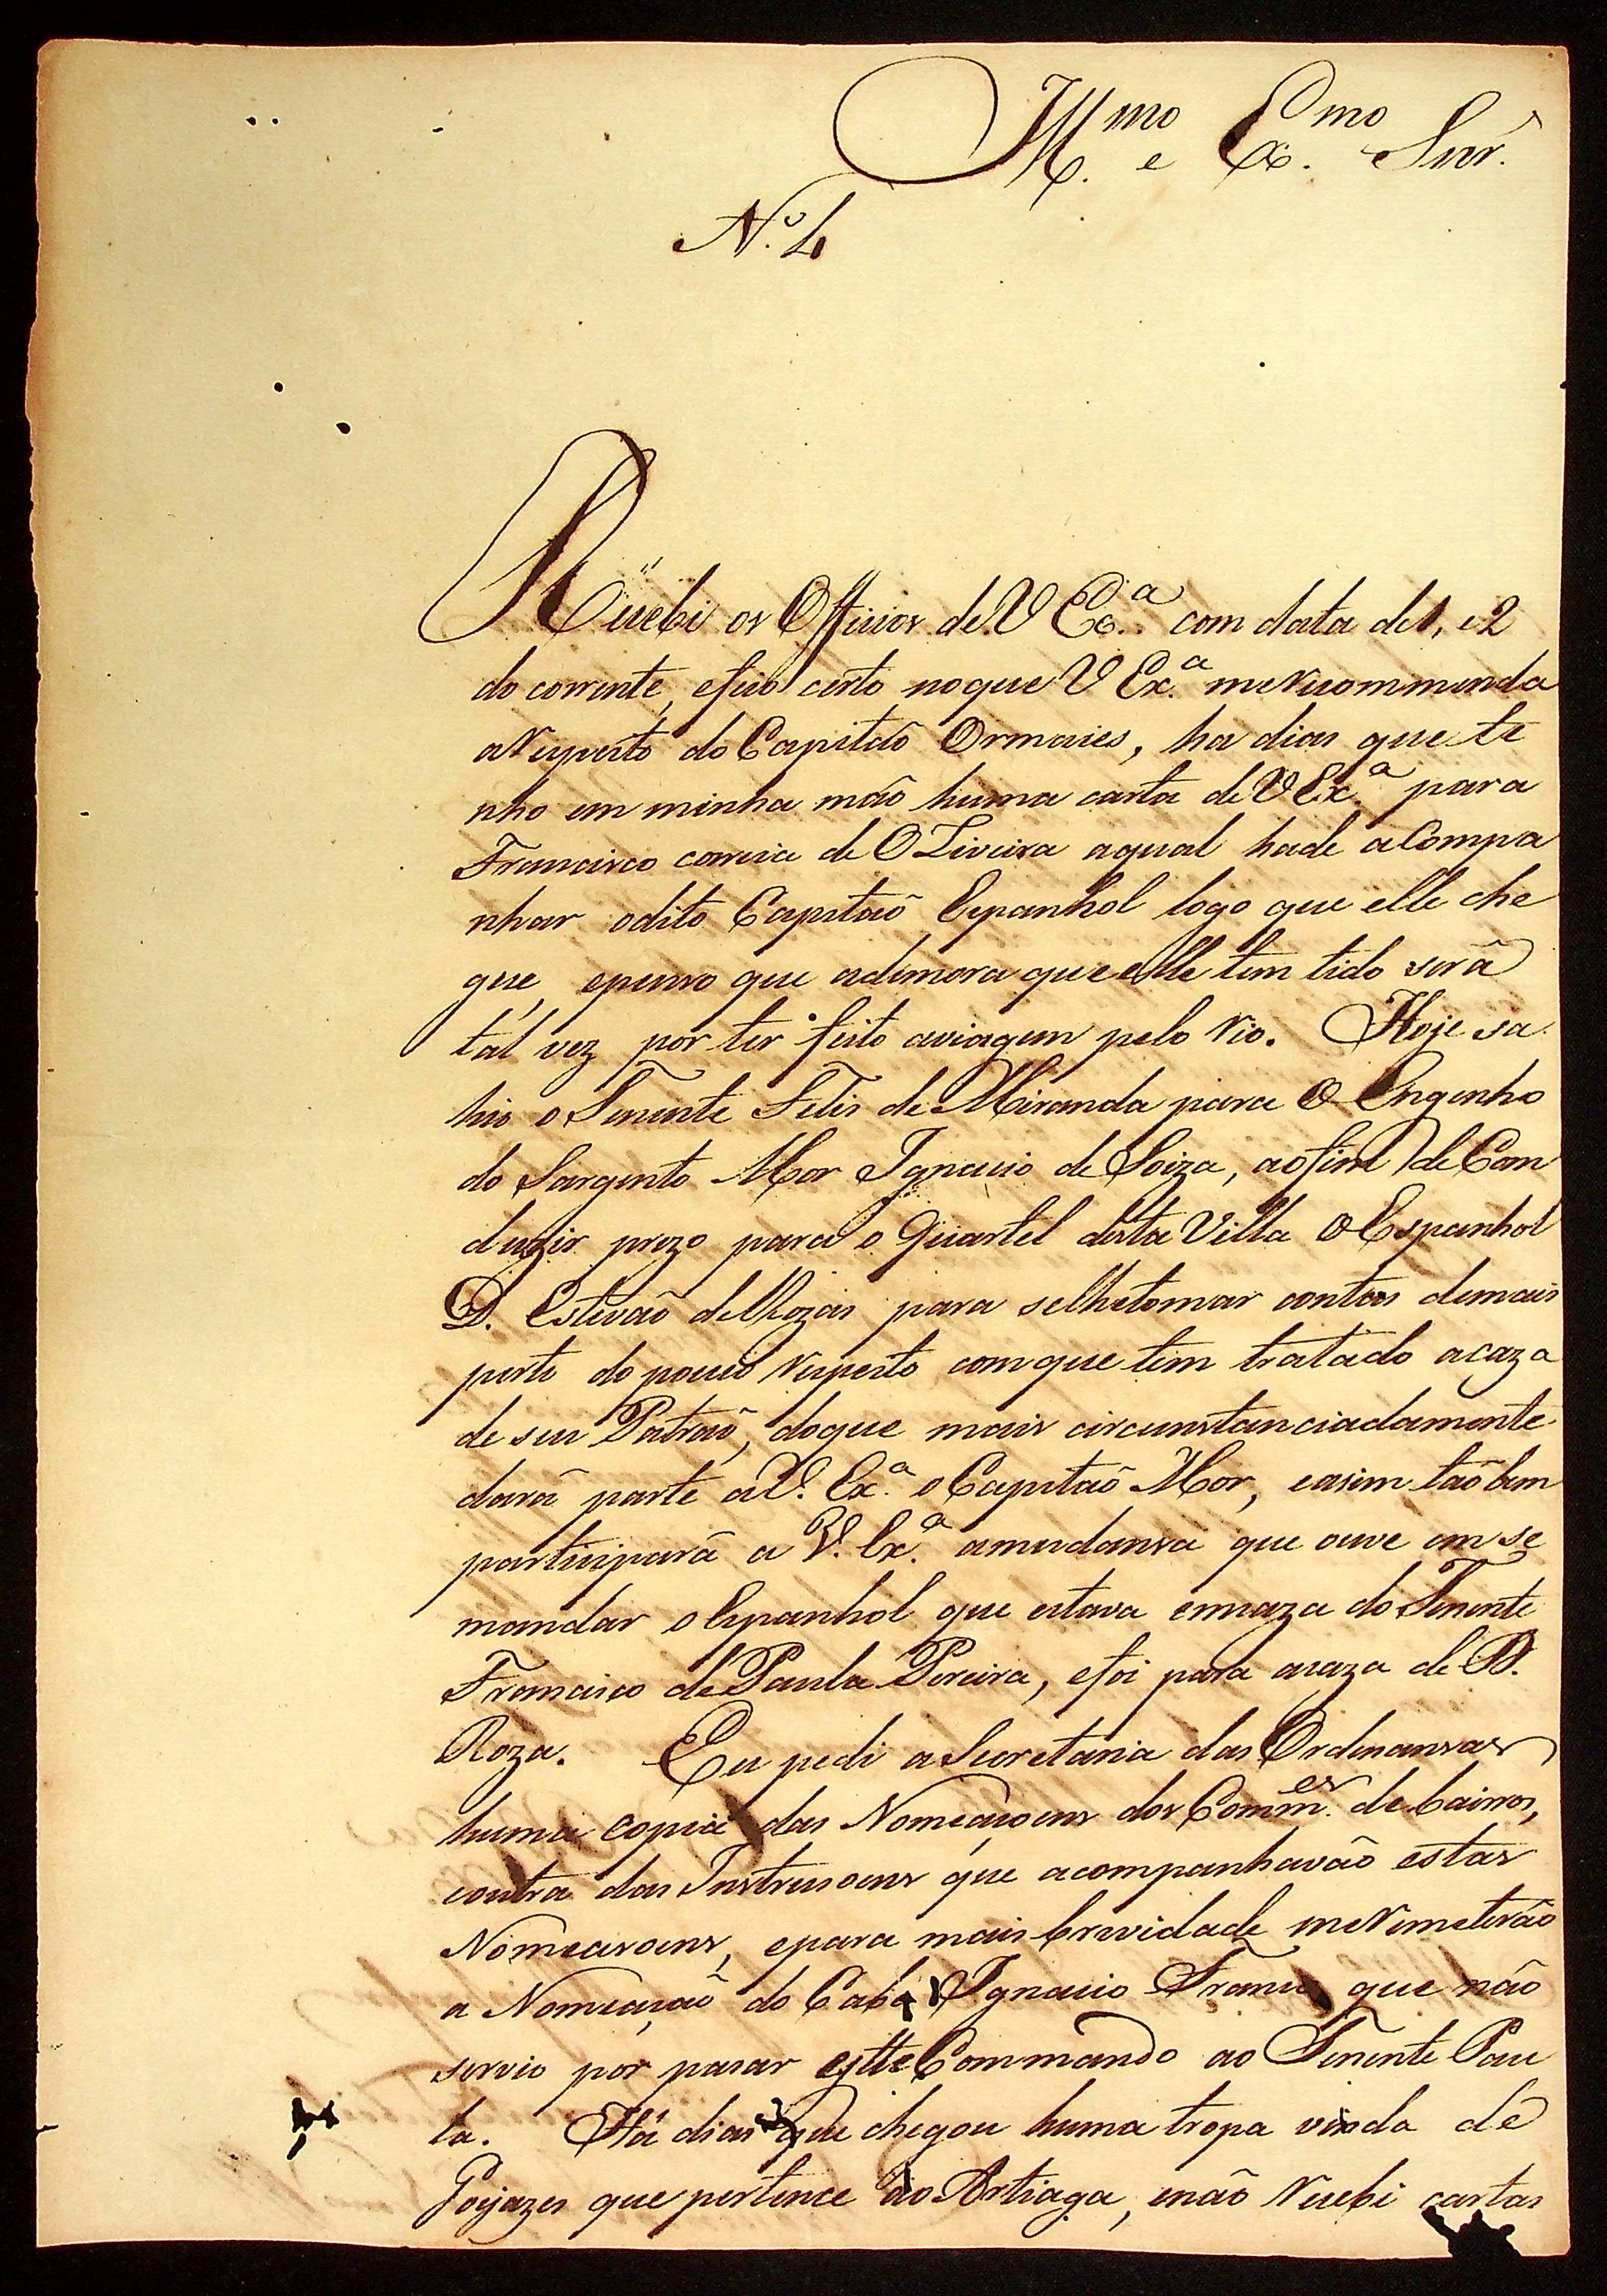 Ill.mo e Ex.mo Snr.
N.º 4
Recebi os Officios de V Ex.ª com data de 1, e 2
do corrente, efico certo noque V Ex.ª meRecommenda
aRespeito do Capitaõ Ormaies, ha dias que te
nho em minha mão huma carta de V Ex.ª para
Francisco correia de OLiveira aqual hade aCompa
nhar odito Capitaõ Espanhol logo que elle che
gue, epenso que ademora que elle tem tido serâ
tal vez por ter feito aviagem pelo Rio. Hoje sa
hio o Tenente Felis de Miranda para O Engenho
do Sargento Mor Ignacio de Soiza, aofim de Con
duzir prezo para o Quartel desta Villa O Espanhol
D. Estevaõ deRozas para selhetomar contas demais
perto do pouco Respeito comque tem tratado acaza
de seu Patraõ, doque mais circunstanciadamente
darâ parte aV. Ex.ª o Capitaõ Mor, easim taõbem
participarâ a V. Ex.ª amudansa que ouve em se
mandar o Espanhol que estava emcaza do Tenente
Francisco de Paula Pereira, efoi para acaza de D.
Roza. Eu pedi aSecretaria das Ordenansas
huma copia das Nomeaçoens dos Comm.es de bairros,
eoutra das Instrusoens que acompanhavão estas
Nomeasoens, epara mais brevidade meRemeterão
a Nomeaçaõ do Cabo Ignacio Franco que não
servio por pasar este Commando ao Tenente Pau
la. Há dias que chegou huma tropa vinda de
Goyazes que pertence ao Artiaga, enão Recebi cartas